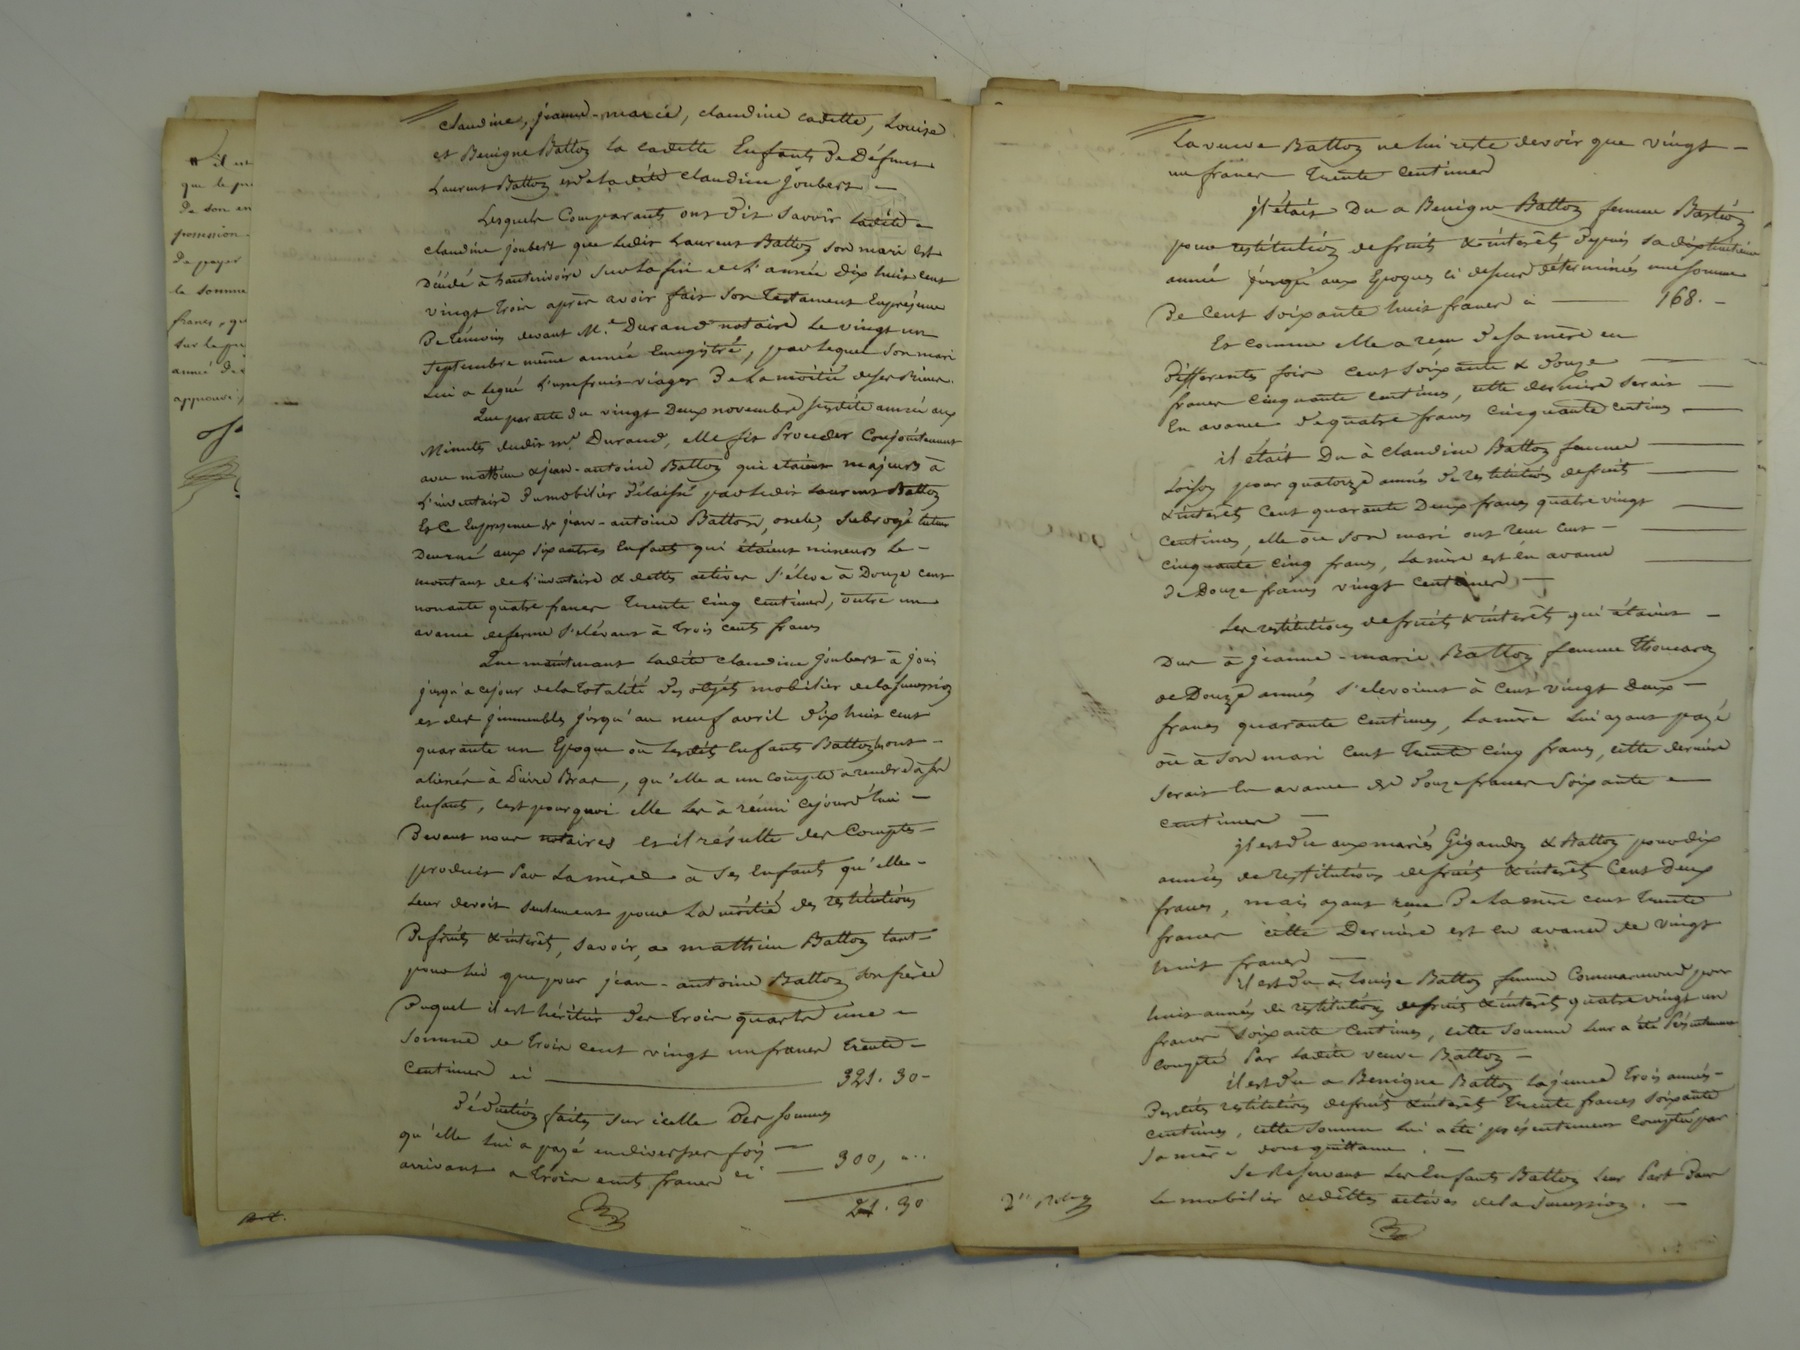 il est
que le pr
de son en
possession
de payer
la somme
francs, qu
sur le pr
année de
approuvé
claudine, jeanne-marie, claudine cadette, Louise
et Benigne Battoz la cadette Enfants de Défunt
Laurent Battoz et de ladite Claudine Joubert —
Lesquels Comparants ont dit savoir ladite
claudine joubert que ledit Laurent Battoz son mari est
Décédé à hauterivoire sur la fin de l'année dix huit cent
vingt trois après avoir fait son Testament En présence
De témoins devant Me. Durand notaire le vingt un
septembre même année Enregistré, par lequel son mari
lui a légué l'usufruit viager De la moitié de ses biens.
Que par acte du vingt Deux novembre susdite année aux
Minutes dudit me Durand, elle fit Procéder Conjointement
avec mathieu & jean-antoine Battoz qui étaient majeurs à
L'inventaire du mobilier délaissé par ledit Laurent Battoz
Et Ce En présence de jean-antoine Battoz, oncle, subrogé tuteur
Decerné aux six autres Enfants qui étaient mineurs le —
montant de l'inventaire & dettes actives s'éleve à Douze cent
nonante quatre francs trente cinq centimes, outre une
avance de ferme s'élévant à trois cents francs
Que maintenant ladite claudine joubert à joui
jusqu'a ce jour de la totalité des objets mobilier de la succession
et des immeubles jusqu'au neuf avril dix huit cent
quarante un Epoque où lesdits Enfants Battoz ont —
aliénés à Bras, qu'elle a un compte a rendre à ses
Enfants, c'est pourquoi elle les à réuni cejourd'hui —
Devant nous notaires et il résulte des Comptes —
produit Par La mère à ses Enfants qu'elle —
leur devoit seulement pour la moitié des restitutions
De fruits & intérêts, savoir, a mathieu Battoz tant —
pour lui que pour jean-antoine Battoz son frère
Duquel il est héritier Des trois quarts une —
somme de trois cent vingt un francs trente —
Centimes ci — 321. 30 —
déduction faite sur icelle Des sommes
qu'elle lui a payé en diverses fois —
arrivant a trois cents francs ci — 300, "
21. 30
La veuve Battoz ne lui reste devoir que vingt —
un francs trente centimes
il était Du a Benigne Battoz femme
pour restitution de fruits & intérêts depuis sa dixhuitieme
année jusqu'aux Epoques ci dessus déterminées une somme
De Cent soixante huit francs ci — 168. —
Et comme elle a reçu de sa mère en
différentes fois cent soixante & douze —
francs cinquante centimes, cette derniere serait —
En avance de quatre francs cinquante centimes —
il était Du à Claudine Battoz femme —
Loison pour quatorze années de restitution de fruits —
& intérêts Cent quarante Deux francs quatre vingt —
centimes, elle ou son mari ont reçu cent —
cinquante cinq francs, la mère est en avance —
de Douze francs vingt centimes —
Les restitutions de fruits & intérêts qui étaient —
Dus à jeanne-marie Battoz femme
de Douze années s'elevoient à Cent vingt Deux —
francs quarante centimes, La mère lui ayant payé
ou à son mari Cent trente cinq francs, cette derniere
serait En avance de Douze francs soixante —
centimes —
il est Du aux mariés Gigandon & Battoz pour dix
années de restitutions de fruits & intérêts Cent Deux
francs, mais ayant reçu De la mère cent trente
francs cette Derniere est en avance de vingt
huit francs —
il est Du à Louise Battoz femme Commarmond pour
huit années de restitutions de fruits & intérêts quatre vingt un
francs soixante Centimes, cette somme leur a été Présentement
compté Par ladite veuve Battoz —
il est Du a Benigne Battoz la jeune trois années —
Desdites restitutions de fruits & intérêts trente francs soixante
centimes, cette somme lui a été présentement compté par
sa mère dont quittance. —
Se Reservant Les Enfants Battoz leur Part Dans
le mobilier & dettes actives de la succession. —